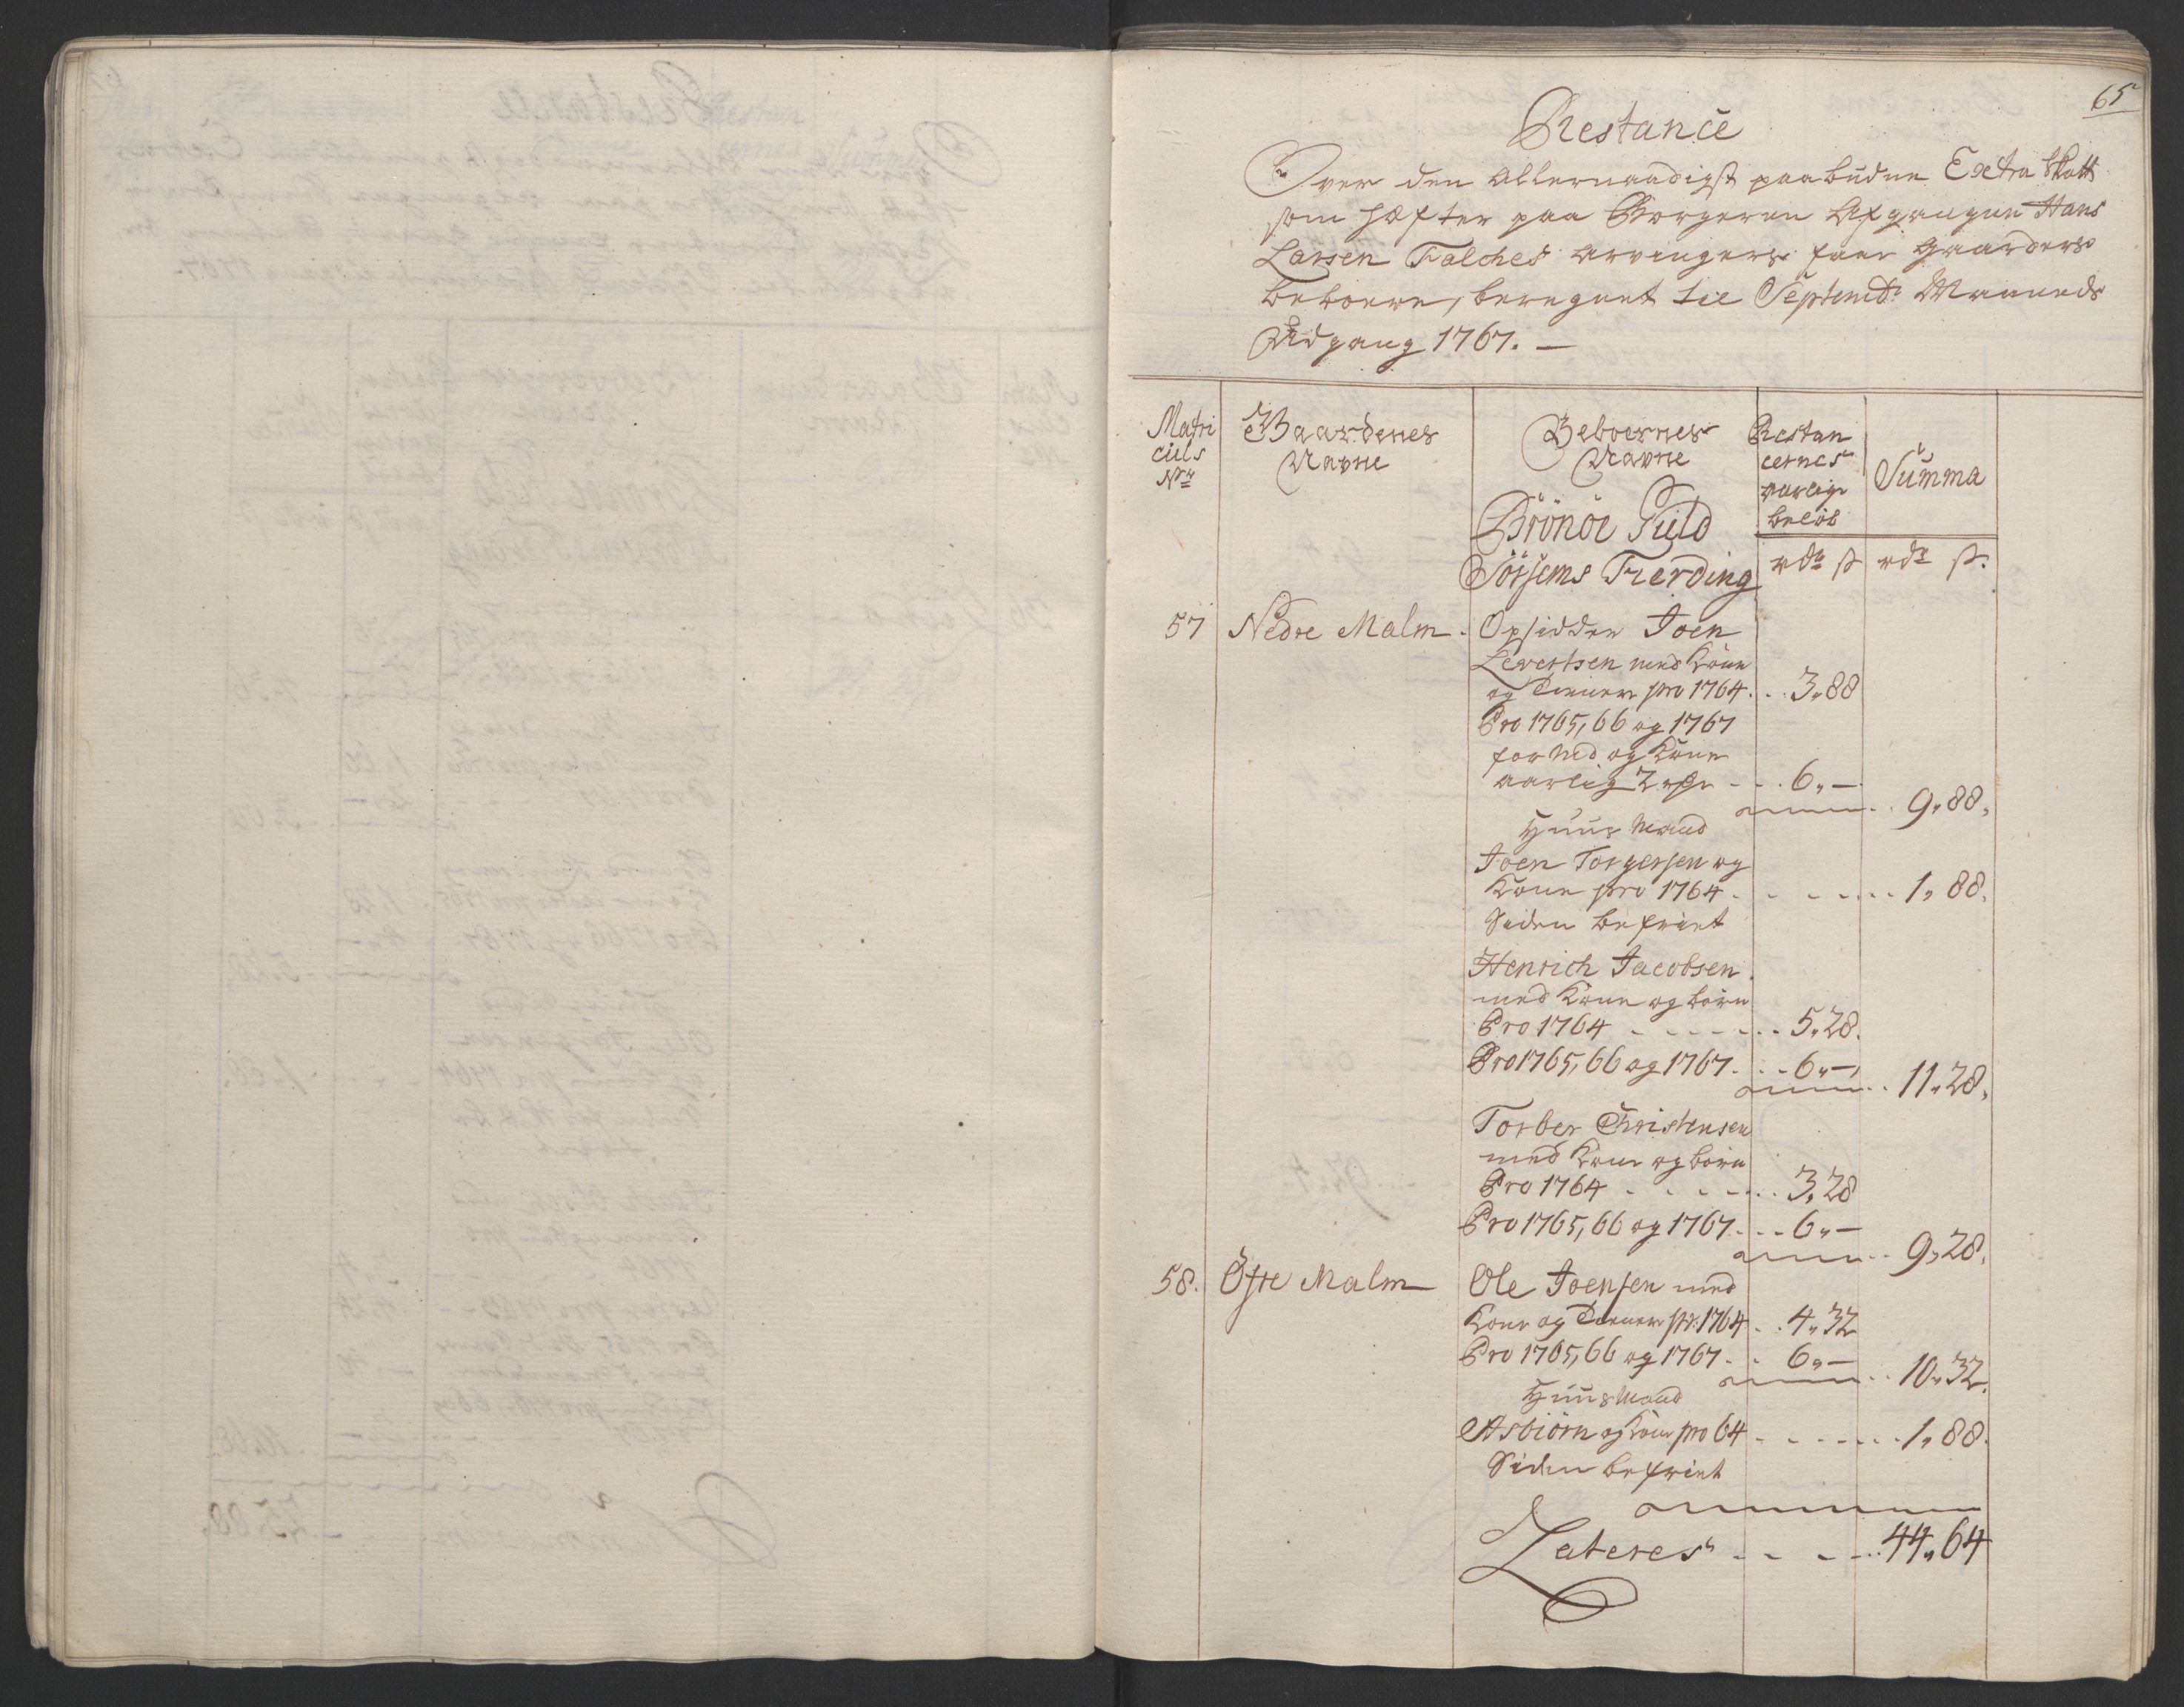 65
Restance
Over den Allernaadigst paabudne Extra Skatt
som hæfter paa Borgeren Afgangne Hans
Larsen Falches Arvingers Gaarders
beboere, beregnet til Septembr Maaneds
Udgang 1767. —
Matri
culs
Nr
Gaardenes
Navne
Beboernes
Navne
Restan
cernes
aarlige
beløb
Summa
Brönöe Giæld
Sörsems Fierding
rdr s rdr s.
57 Nedre Malm. Opsidder Joen
Levertsen med Kone
og Tienere pro 1764. . . 3,88
Pro 1765, 66 og 1767
for sed og Kone
aarlig 2 rdr - - . 6,—
9,88,
Huus Mand
Joen Torgersen og
Kone pro 1764 . - - - - . . 1, 88.
Siden befriet
Henrich Jacobsen.
med Kone og børn
Pro 1764 . - - - - . . 5,28.
Pro 1765, 66 og 1767. . . 6,—,
11,28,
Torber Christensen
med Kone og børn
Pro 1764 . - - - . . 3,28
Pro 1765, 66 og 1767. . . 6,—
9,28,
58. Öfre Malm Ole Joensen med
Kone og Tienere pr: 1764 . . 4,32
Pro 1765, 66 og 1767. . 6,—
10,32.
Huus Mand
Asbiörn og Kone pro 64 - - - - . . 1,88.
Siden befriet
Lateres - - - - . . 44,64